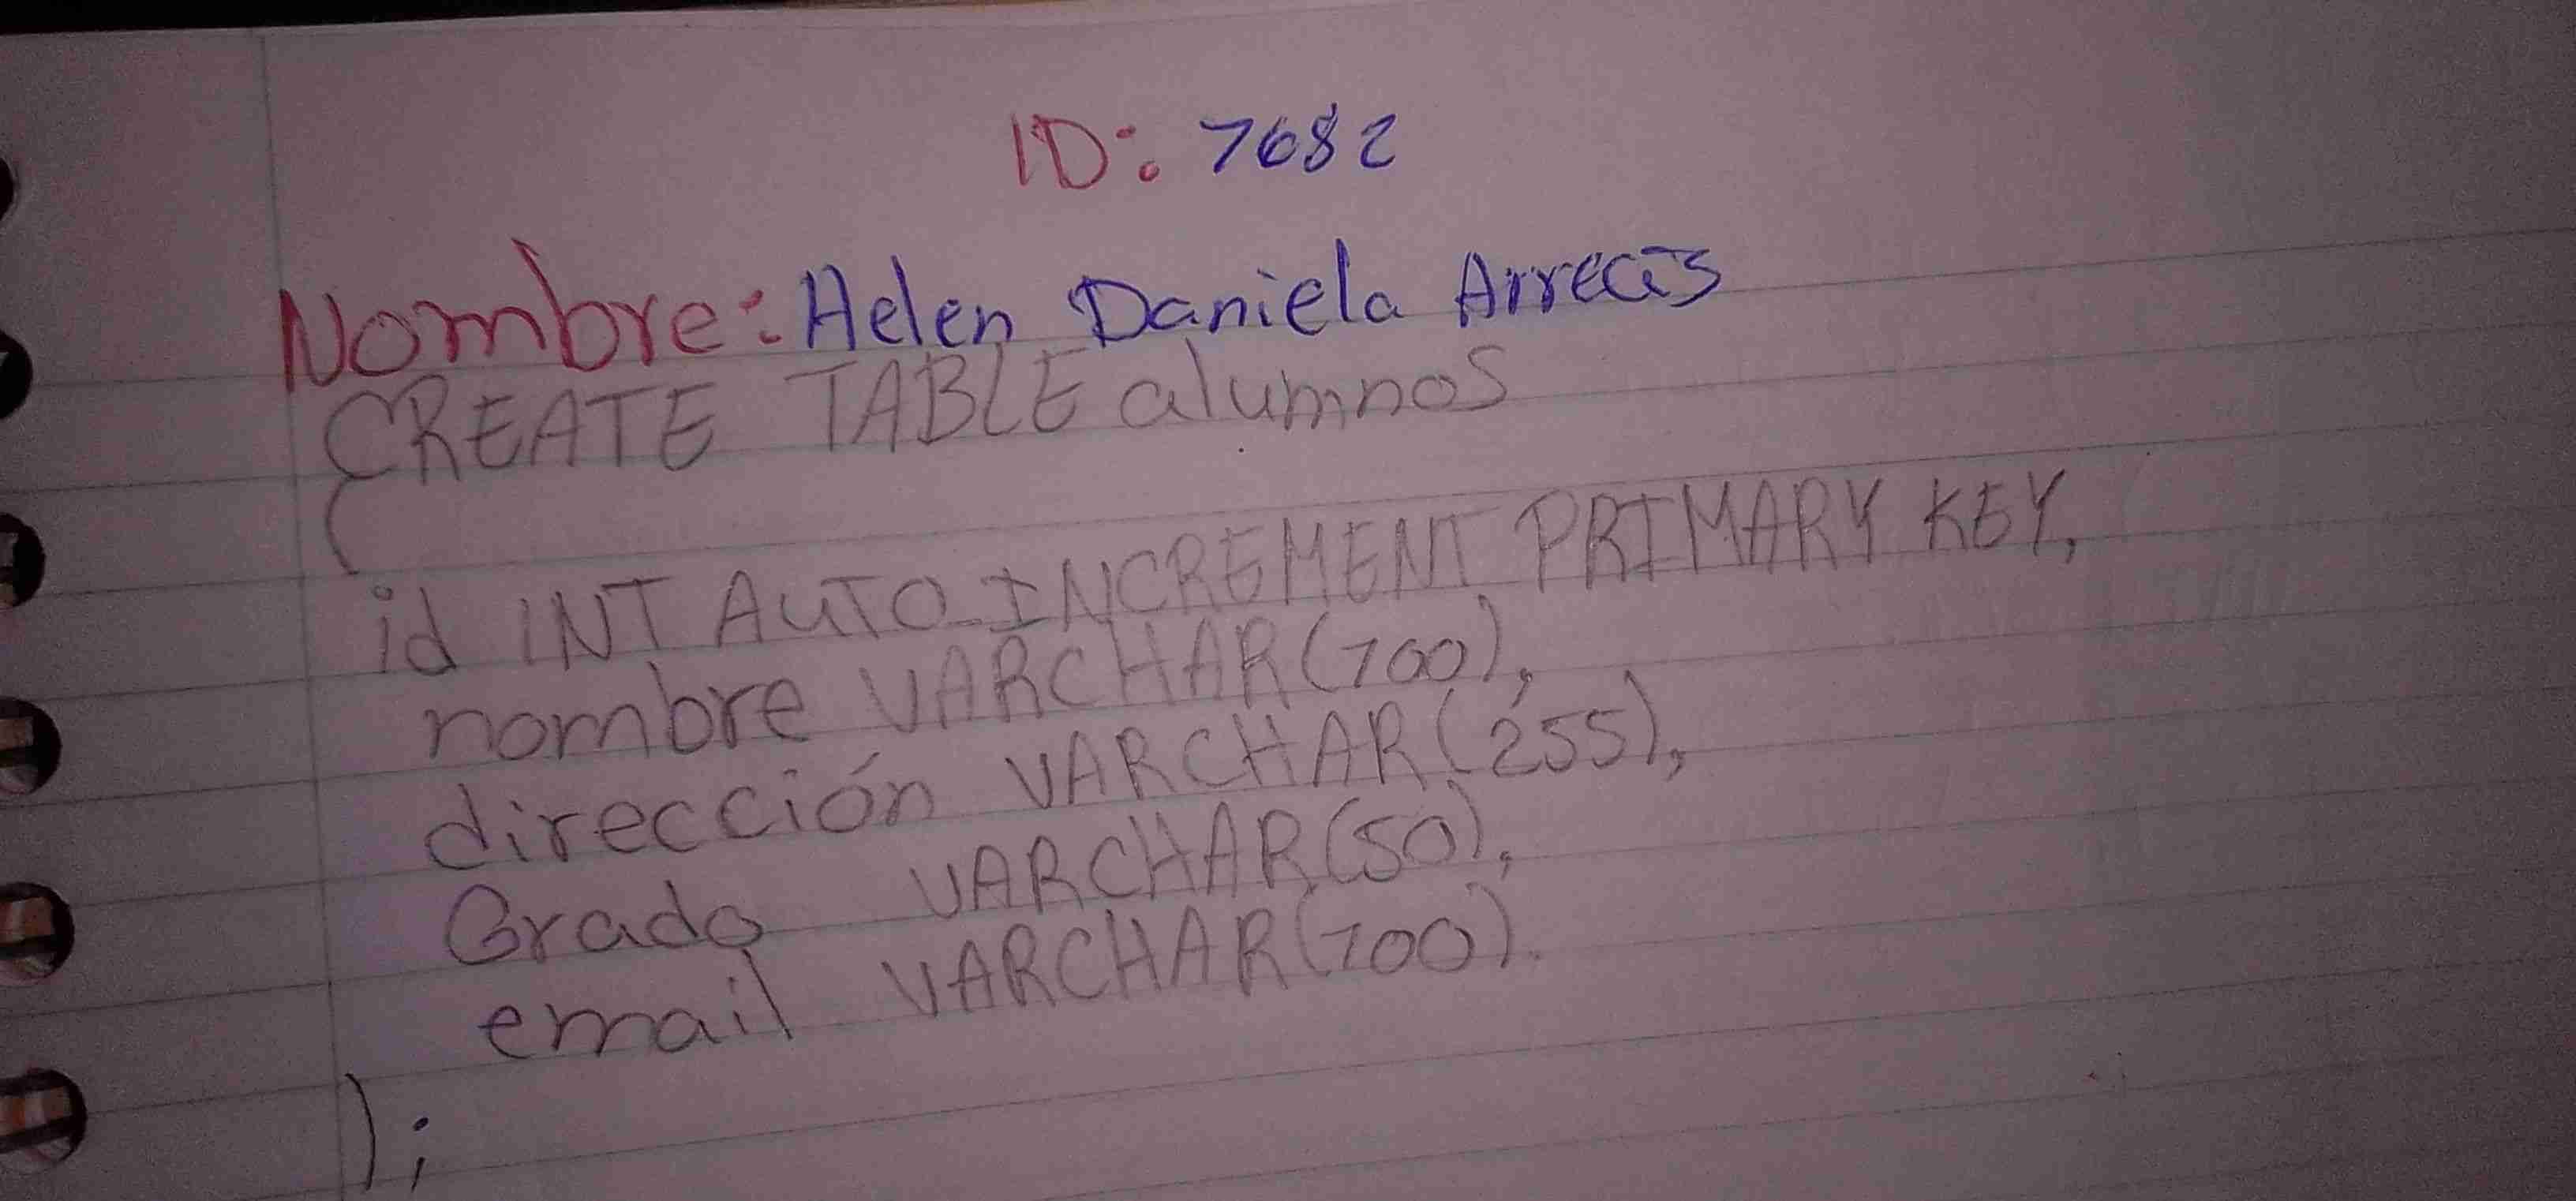 ID: 7682
Nombre: Helen Daniela Arrecis
CREATE TABLE alumnos
(
id INT AUTO_INCREMENT PRIMARY KEY,
nombre VARCHAR(100),
dirección VARCHAR(255),
Grado VARCHAR(50),
email VARCHAR(100).
);